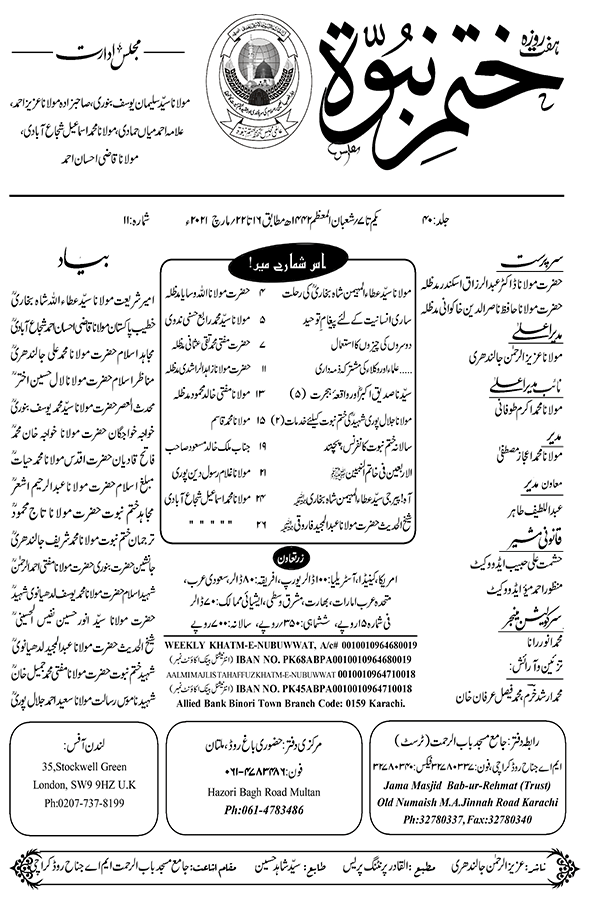 ہفت روزہ
ختم نبوۃ
مجلس ادارت
مولانا سید سلیمان یوسف بنوری، صاحبزادہ مولانا عزیز احمد،
علامہ احمد میاں حمادی، مولانا محمد اسماعیل شجاع آبادی،
مولانا قاضی احسان احمد
جلد: ۴۰
یکم تا ۷ شعبان المعظم ۱۴۴۲ھ مطابق ۱۶ تا ۲۲ مارچ ۲۰۲۱ء
شمارہ: ۱۱
سرپرست
حضرت مولانا ڈاکٹر عبدالرزاق اسکندر مدظلہ
حضرت مولانا حافظ ناصر الدین خاکوانی مدظلہ
مدیر اعلیٰ
مولانا عزیز الرحمٰن جالندھری
نائب مدیر اعلیٰ
مولانا محمد اکرم طوفانی
مدیر
مولانا محمد اعجاز مصطفیٰ
معاون مدیر
عبداللطیف طاہر
قانونی مشیر
حشمت علی حبیب ایڈووکیٹ
منظور احمد میؤ ایڈووکیٹ
سرکولیشن منیجر
محمد انور رانا
تزئین و آرائش:
محمد ارشد خرم، محمد فیصل عرفان خان
اس شمارے میں!
مولانا سید عطاء المہیمن شاہ بخاریؒ کی رحلت ۴ حضرت مولانا اللہ وسایا مدظلہ
ساری انسانیت کے لئے پیغام توحید ۵ مولانا سید محمد رابع حسنی ندوی
دوسروں کی چیزوں کا استعمال ۷ حضرت مفتی محمد تقی عثمانی مدظلہ
علماء اور وکلاء کی مشترکہ ذمہ داری..... ۱۱ حضرت مولانا زاہد الراشدی مدظلہ
سیدنا صدیق اکبرؓ اور واقعۂ ہجرت (۵) ۱۳ مولانا مفتی خالد محمود مدظلہ
مولانا جلال پوری شہیدؒ کی ختم نبوت کیلئے خدمات (۲) ۱۵ مولانا محمد قاسم
سالانہ ختم نبوت کانفرنس پنجند ۱۹ جناب ملک خالد مسعود صاحب
الاربعین فی خاتم النبیین ﷺ ۲۱ مولانا غلام رسول دین پوری
آہ! پیر جی سید عطاء المہیمن شاہ بخاریؒ ۲۴ مولانا محمد اسماعیل شجاع آبادی
شیخ الحدیث حضرت مولانا عبدالمجید فاروقیؒ ۲۶ " " " " "
زر تعاون
امریکا، کینیڈا، آسٹریلیا: ۱۰۰ ڈالر یورپ، افریقہ: ۸۰ ڈالر، سعودی عرب،
متحدہ عرب امارات، بھارت، مشرق وسطیٰ، ایشیائی ممالک: ۷۰ ڈالر
فی شمارہ ۱۵ روپے، ششماہی: ۳۵۰ روپے، سالانہ: ۷۰۰ روپے
WEEKLY KHATM-E-NUBUWWAT, A/c# 0010010964680019
IBAN NO. PK68ABPA0010010964680019 (انٹرنیشنل بینک اکاؤنٹ نمبر)
AALMIMAJLISTAHAFFUZKHATM-E-NUBUWWAT 0010010964710018
IBAN NO. PK45ABPA0010010964710018 (انٹرنیشنل بینک اکاؤنٹ نمبر)
Allied Bank Binori Town Branch Code: 0159 Karachi.
بیاد
امیر شریعت مولانا سید عطاء اللہ شاہ بخاریؒ
خطیب پاکستان مولانا قاضی احسان احمد شجاع آبادیؒ
مجاہد اسلام حضرت مولانا محمد علی جالندھریؒ
مناظر اسلام حضرت مولانا لال حسین اخترؒ
محدث العصر حضرت مولانا سید محمد یوسف بنوریؒ
خواجۂ خواجگان حضرت مولانا خواجہ خان محمدؒ
فاتح قادیان حضرت اقدس مولانا محمد حیاتؒ
مبلغ اسلام حضرت مولانا عبدالرحیم اشعرؒ
مجاہد ختم نبوت حضرت مولانا تاج محمودؒ
ترجمان ختم نبوت مولانا محمد شریف جالندھریؒ
جانشین حضرت بنوری حضرت مولانا مفتی احمد الرحمٰنؒ
شہید اسلام حضرت مولانا محمد یوسف لدھیانوی شہیدؒ
حضرت مولانا سید انور حسین نفیس الحسینیؒ
شیخ الحدیث حضرت مولانا عبدالمجید لدھیانویؒ
شہید ختم نبوت حضرت مولانا مفتی محمد جمیل خانؒ
شہید ناموس رسالت مولانا سعید احمد جلال پوریؒ
رابطہ دفتر: جامع مسجد باب الرحمت (ٹرسٹ)
ایم اے جناح روڈ کراچی، فون: ۳۲۷۸۰۳۳۷ فیکس: ۳۲۷۸۰۳۴۰
Jama Masjid Bab-ur-Rehmat (Trust)
Old Numaish M.A.Jinnah Road Karachi
Ph:32780337,Fax:32780340
مرکزی دفتر: حضوری باغ روڈ، ملتان
فون: ۰۶۱-۴۷۸۳۴۸۶
Hazori Bagh Road Multan
Ph:061-4783486
لندن آفس:
35,Stockwell Green
London, SW9 9HZ U.K
Ph:0207-737-8199
ناشر: عزیز الرحمٰن جالندھری مطبع: القادر پرنٹنگ پریس طابع: سید شاہد حسین مقام اشاعت: جامع مسجد باب الرحمت ایم اے جناح روڈ کراچی